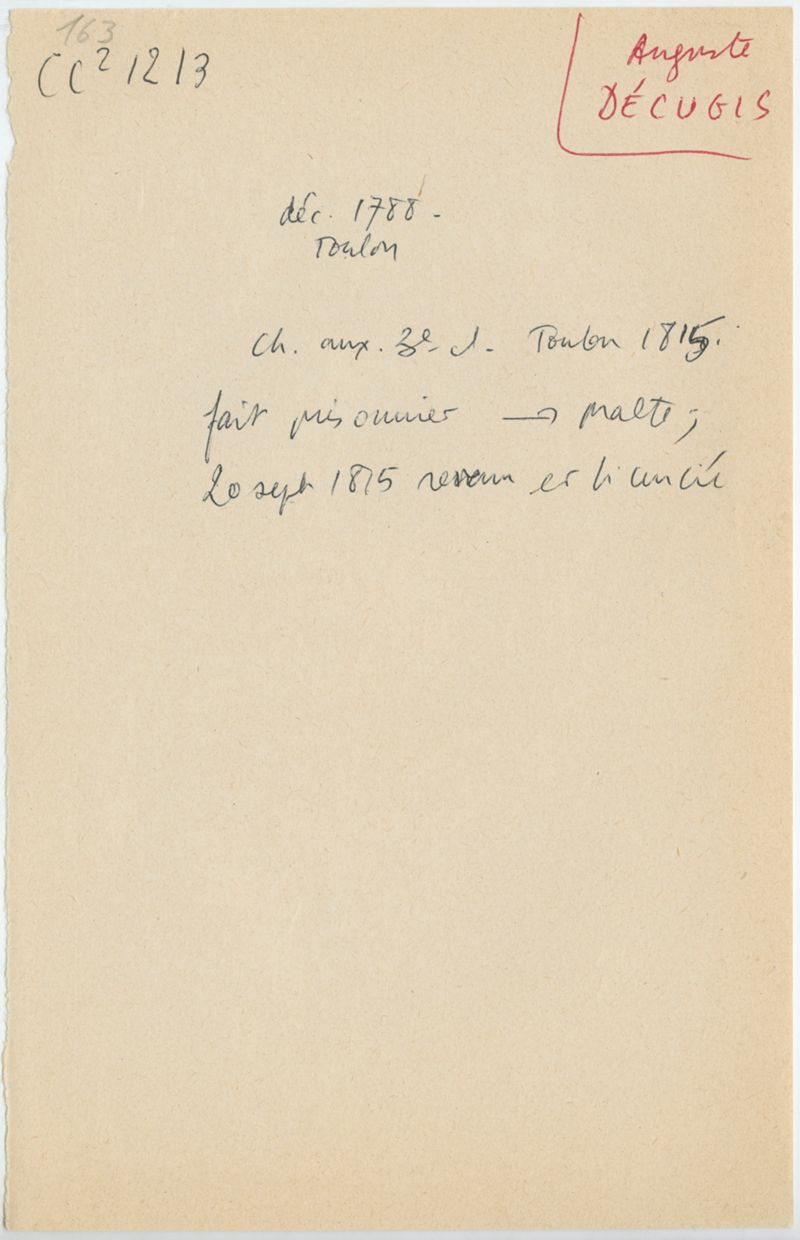 163
CC² 1213
Auguste
DÉCUGIS
déc. 1788.
Toulon
Ch. aux. 3e cl. Toulon 1815.
fait prisonnier → Malte ;
20 sept 1815 revenu et licencié